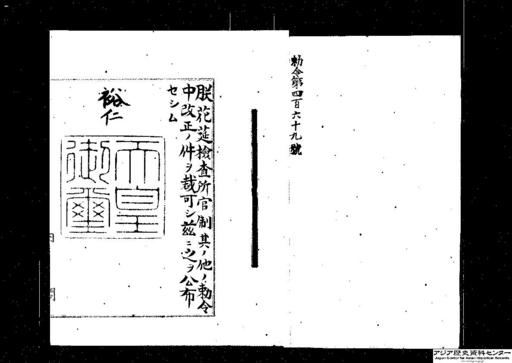 勅令第四百六十九號
朕花莚檢査所官制其ノ他ノ勅令
中改正ノ件ヲ裁可シ茲ニ之ヲ公布
セシム
裕仁
天皇
御璽
アジア歴史資料センター
Japan Center for Asian Historical Records